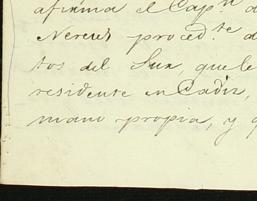 afirma el Capn. d
Nereus procedte. d
tos del Sur, que le
residente en Cadiz,
mano propia, y q